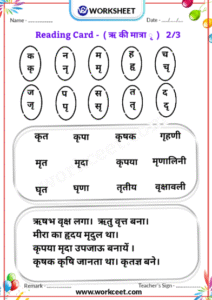 V2 WORKSHEET
Name - Date -
Reading Card - ( ऋ की मात्रा ृ ) 2/3
क न म ह घ
कृ नृ मृ हृ घृ
ज प स त द
जृ पृ सृ तृ दृ
कृत कृपा कृषक गृहणी
मृत मृदा कृपया मृणालिनी
घृत घृणा तृतीय वृक्षावली
ऋषभ वृक्ष लगा। ऋतु वृत्त बना।
मीरा का हृदय मृदुल था।
कृपया मृदा उपजाऊ बनायें ।
कृषक कृषि जानता था। कृतज्ञ बने।
Remark - Teacher's Sign -
www.workceet.com